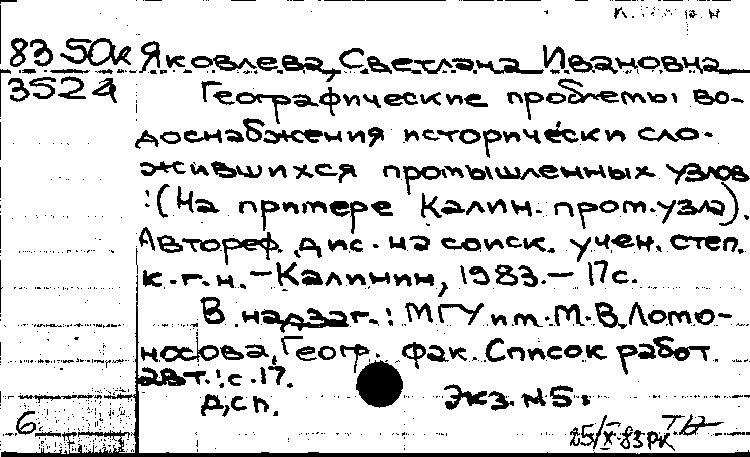 83 50к Яковлева, Светлана Ивановна
3524 Географические проблемы во-
доснабжения исторически сло-
жившихся промышленных узлов
:(На примере Калин. пром. узла).
Автореф. дис. на соиск. учен. степ.
к.г.н. – Калинин, 1983. – 17с.
В надзаг.: МГУ им. М.В. Ломо-
носова, Геогр. фак. Список работ
авт.: с.17.
Дсп. Экз. №5.
6
25/X-83 РК